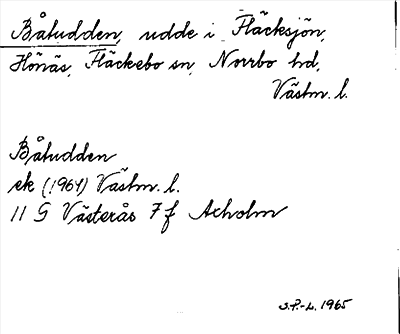 Båtudden, udde i Fläcksjön,
Hönäs, Fläckebo sn, Norrbo hd,
Västm. l.
Båtudden
ek (1964) Västm. l.
11 G Västerås 7 f Acholm
S.P.-L. 1965